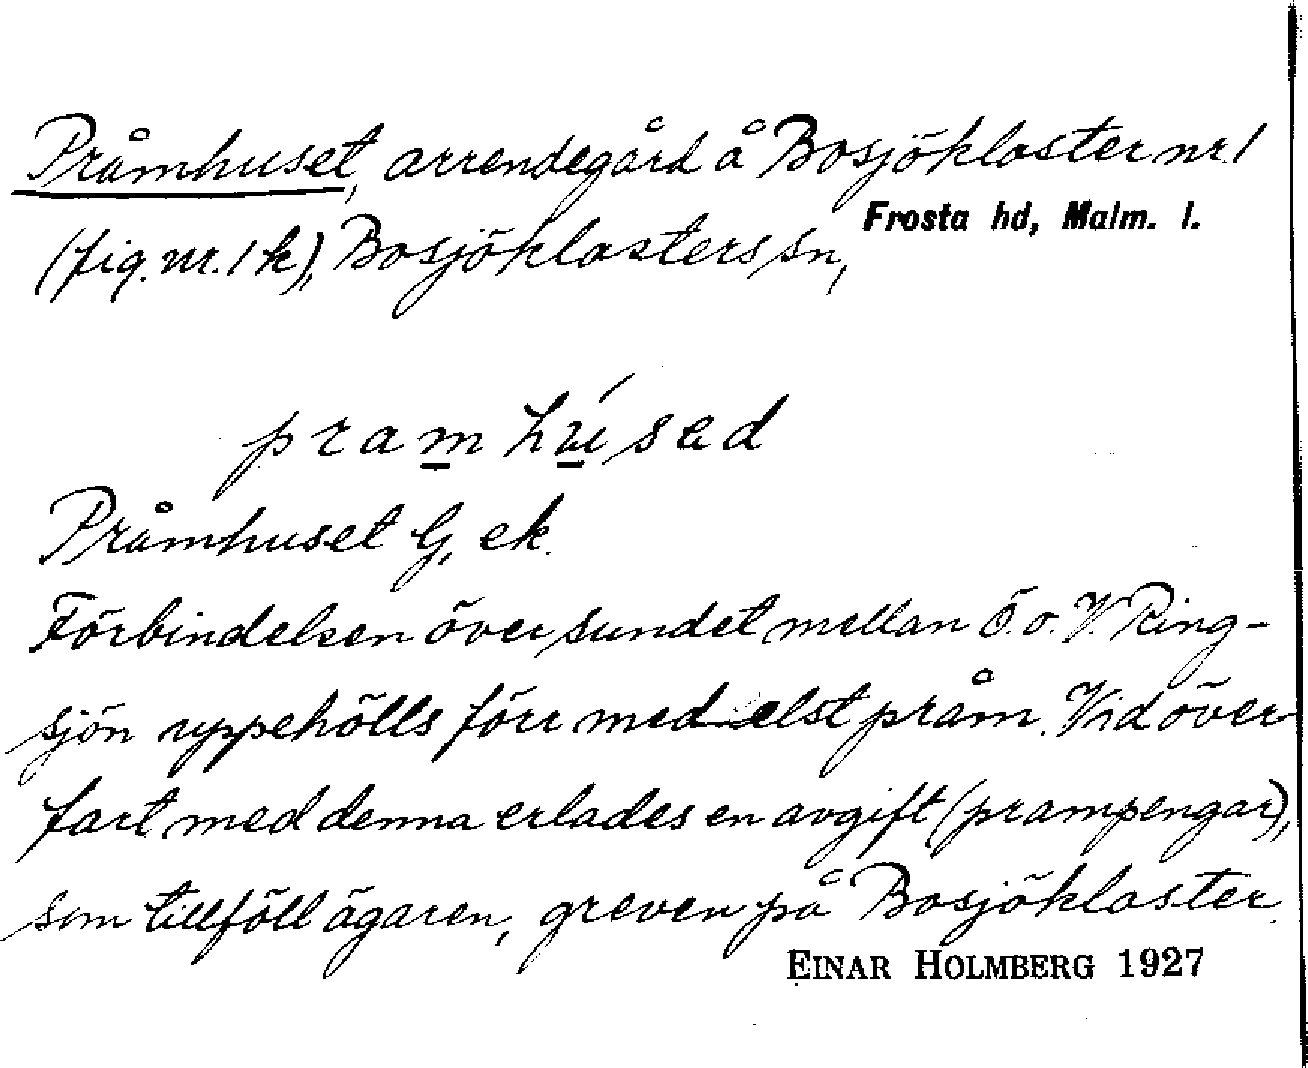 Pråmhuset, arrendegård å Bosjökloster nr. 1
(fig. nr. 1 k), Bosjöklosters sn,
Frosta hd, Malm. l.
pramhúsad
Pråmhuset G, ek.
Förbindelsen över sundet mellan Ö. o. V. Ring-
sjön uppehölls förr medelst pråm. Vid över-
fart med denna erlades en avgift (prampengar),
som tillföll ägaren, greven på Bosjökloster.
EINAR HOLMBERG 1927